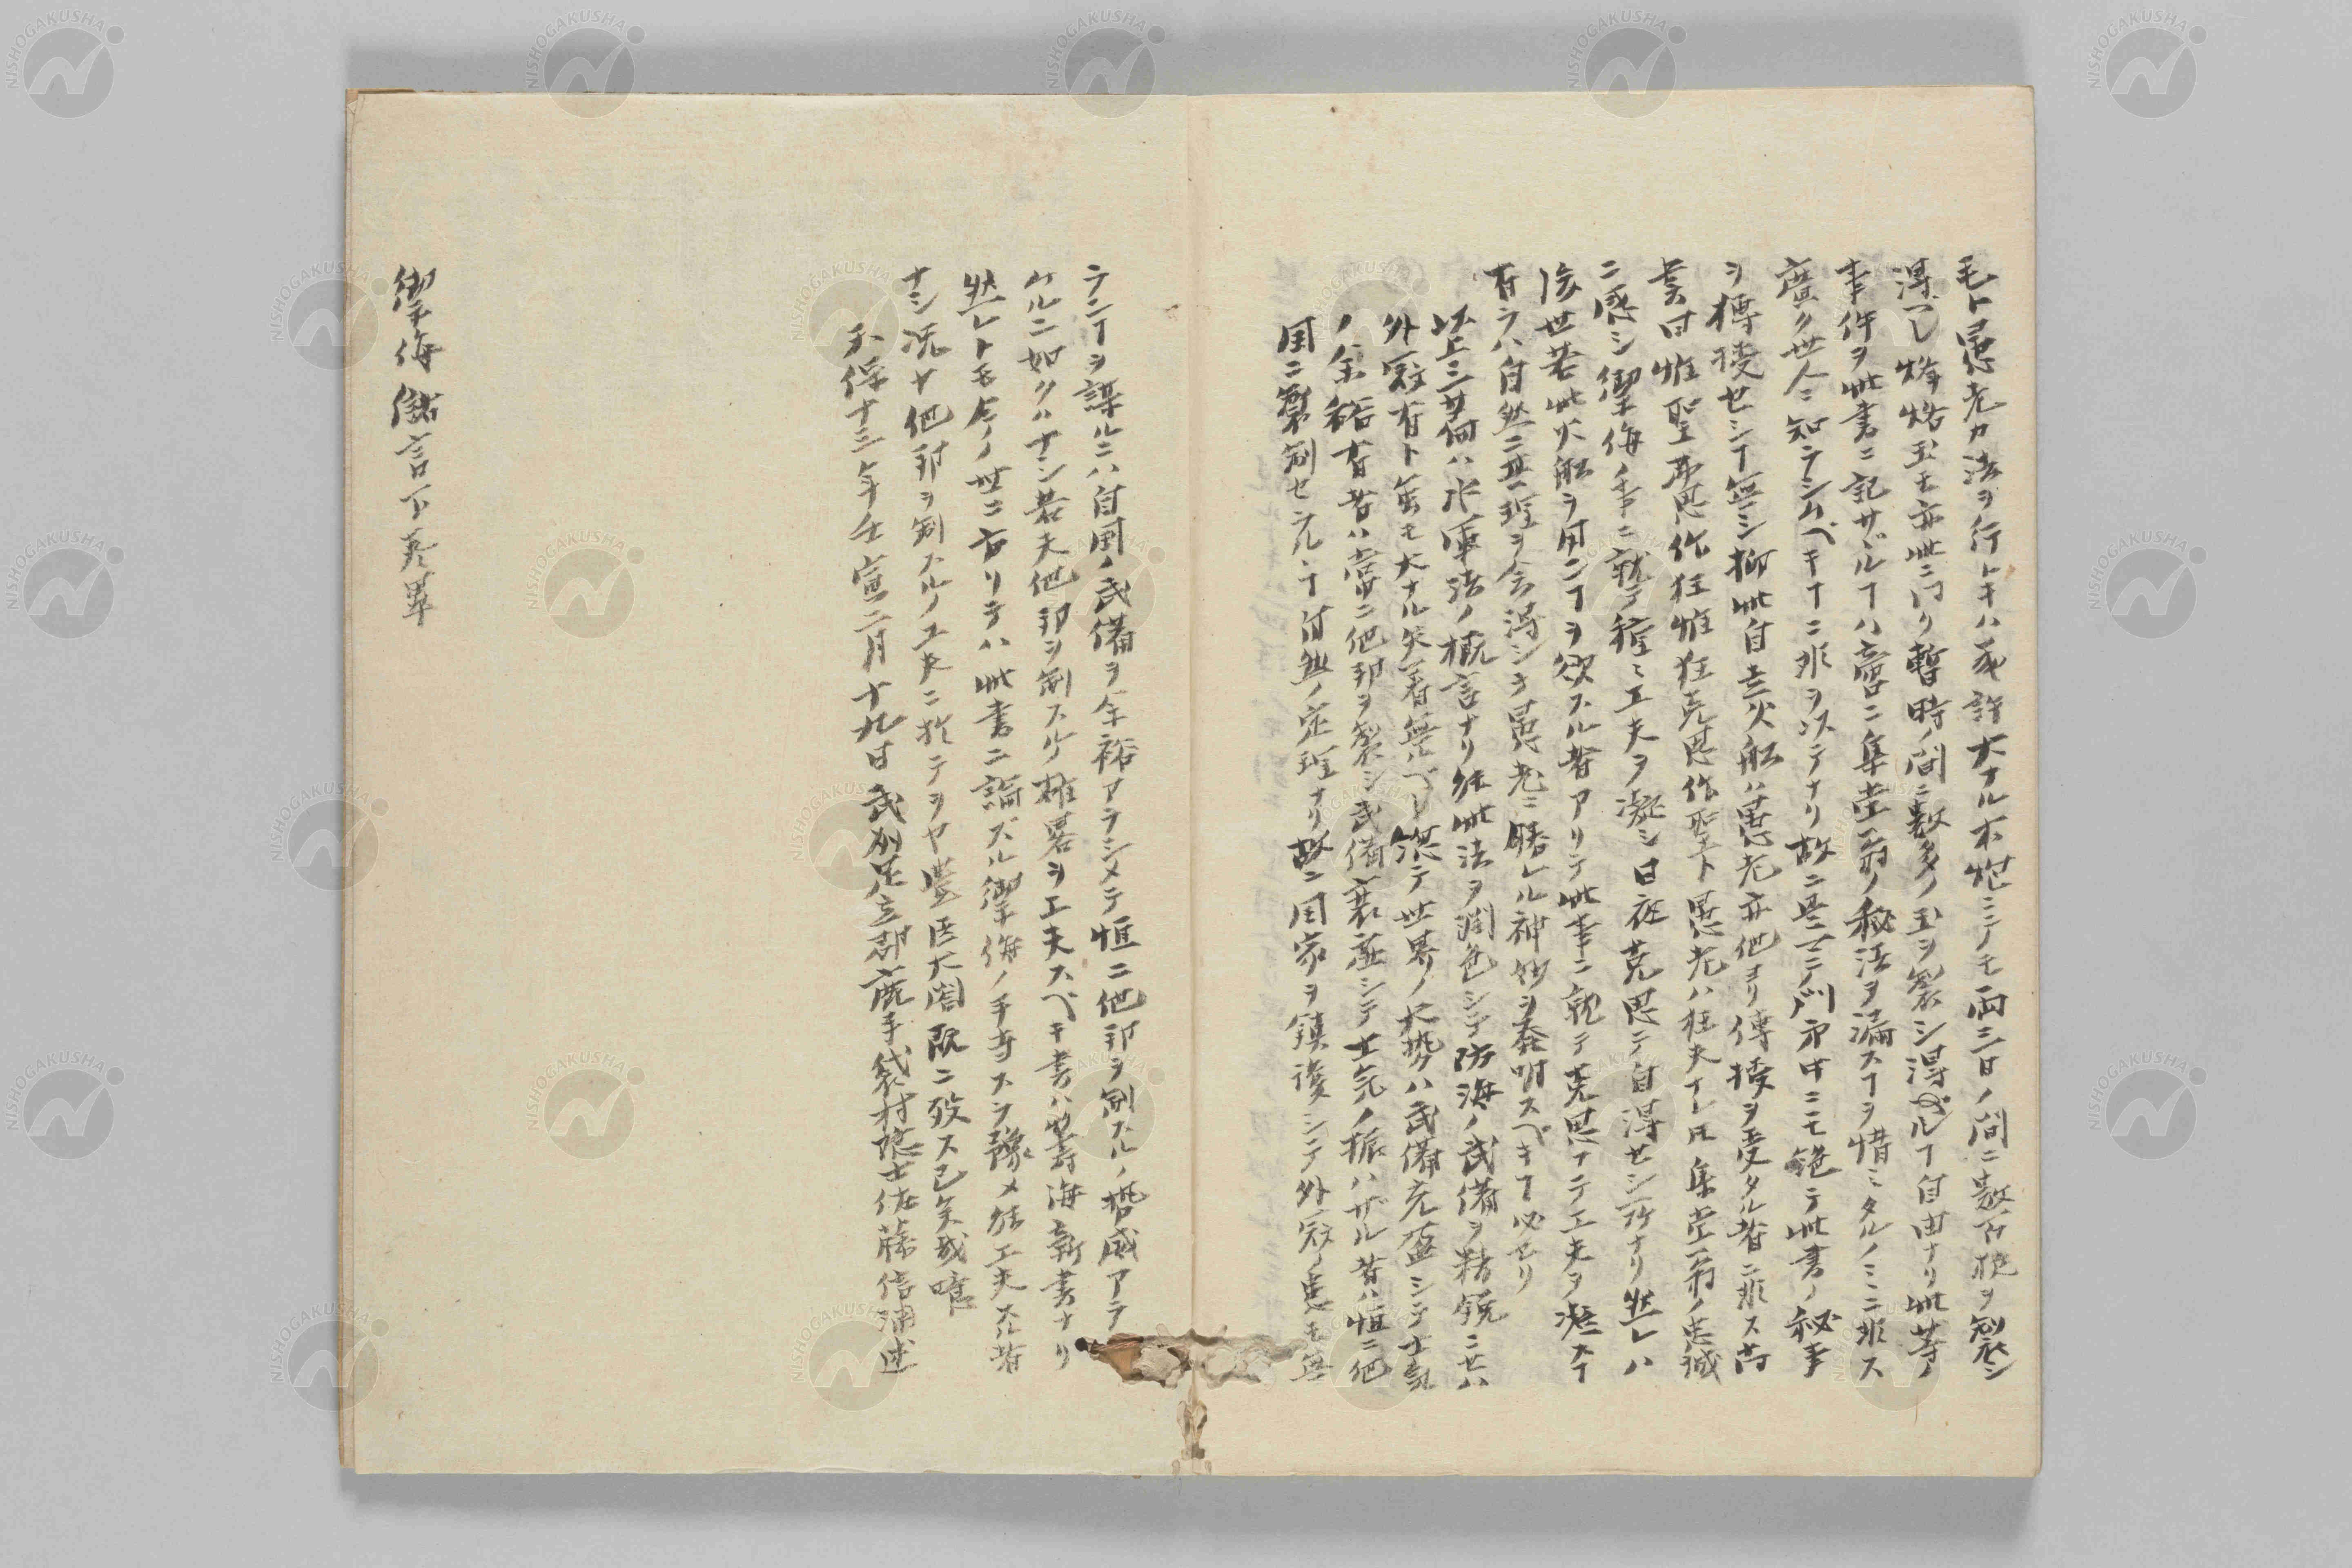 モト愚老カ法ヲ行トキハ葮許大ナル木炮ニテモ両三日ノ間ニ数百挺ヲ製シ
得ベシ烽烙玉モ亦此ニ同ク暫時ノ間ニ数多ノ玉ヲ製シ得ベルヿ自由ナリ此等ノ
事件ヲ此書ニ記サヾルヿハ啻ニ集堂翁ノ秘法ヲ漏スヿヲ惜ミタルノミニ非ス
廣ク世人ニ知ラシムベキヿニ非ヲ以テナリ故ニ兵士ノ門弟中ニモ絶テ此書ノ秘事
ヲ傳授セシヿ無シ抑此自走火船ハ愚老亦他ヨリ傳授ヲ受タル者ニ非ス尚
書曰惟聖罔思作狂惟狂克思作聖ト愚老ハ狂夫ナレ𪜈集堂翁ノ忠誠
ニ感シ禦侮ノ事ニ就テ種ミ工夫ヲ凝シ日夜克思テ自得セシ所ナリ然レハ
後世若此火船ヲ用ンヿヲ欲スル者アリテ此事ニ就テ克思ヿテ工夫ヲ凝スヿ
有ラハ自然ニ其理ヲ会得シテ愚老ニ勝レル神妙ヲ発明スベキヿ必セリ
以上三母何ハ水軍法ノ概言ナリ能此法ヲ潤色シテ防海ノ武備ヲ精鋭ニセハ
外寇有ト雖モ大ナル失著無ルベシ總テ世界ノ大勢ハ武備充盈シテ士気
ノ余裕有者ハ常ニ他邦ヲ製シ武備衰虚シテ士気ノ振ハザル者ハ恒ニ他
国ニ製制セラル寸自然ノ定理ナリ故ニ国家ヲ鎮護シテ外寇ノ患モ無
ランヿヲ謀ルニハ自国ノ武備ヲ全裕アラシメテ恒ニ他邦ヲ制スルノ勢威アラ
ルニ如クハナシ若夫他邦ヲ制スルノ権畧ヲ工夫スベキ書ハ籌海新書ナリ
然レトモ今ノ世ニ方リテハ此書ニ論ズル禦侮ノ手当スラ豫メ能工夫スル者
ナシ況ヤ他邦ヲ制スルノ工夫ニ於テヲヤ豊臣大閤既ニ歿ス已矣哉噫
天保十三年壬寅二月十九日武州足立郡鹿手袋村隠士佐藤信淵述
禦侮儲言下巻畢